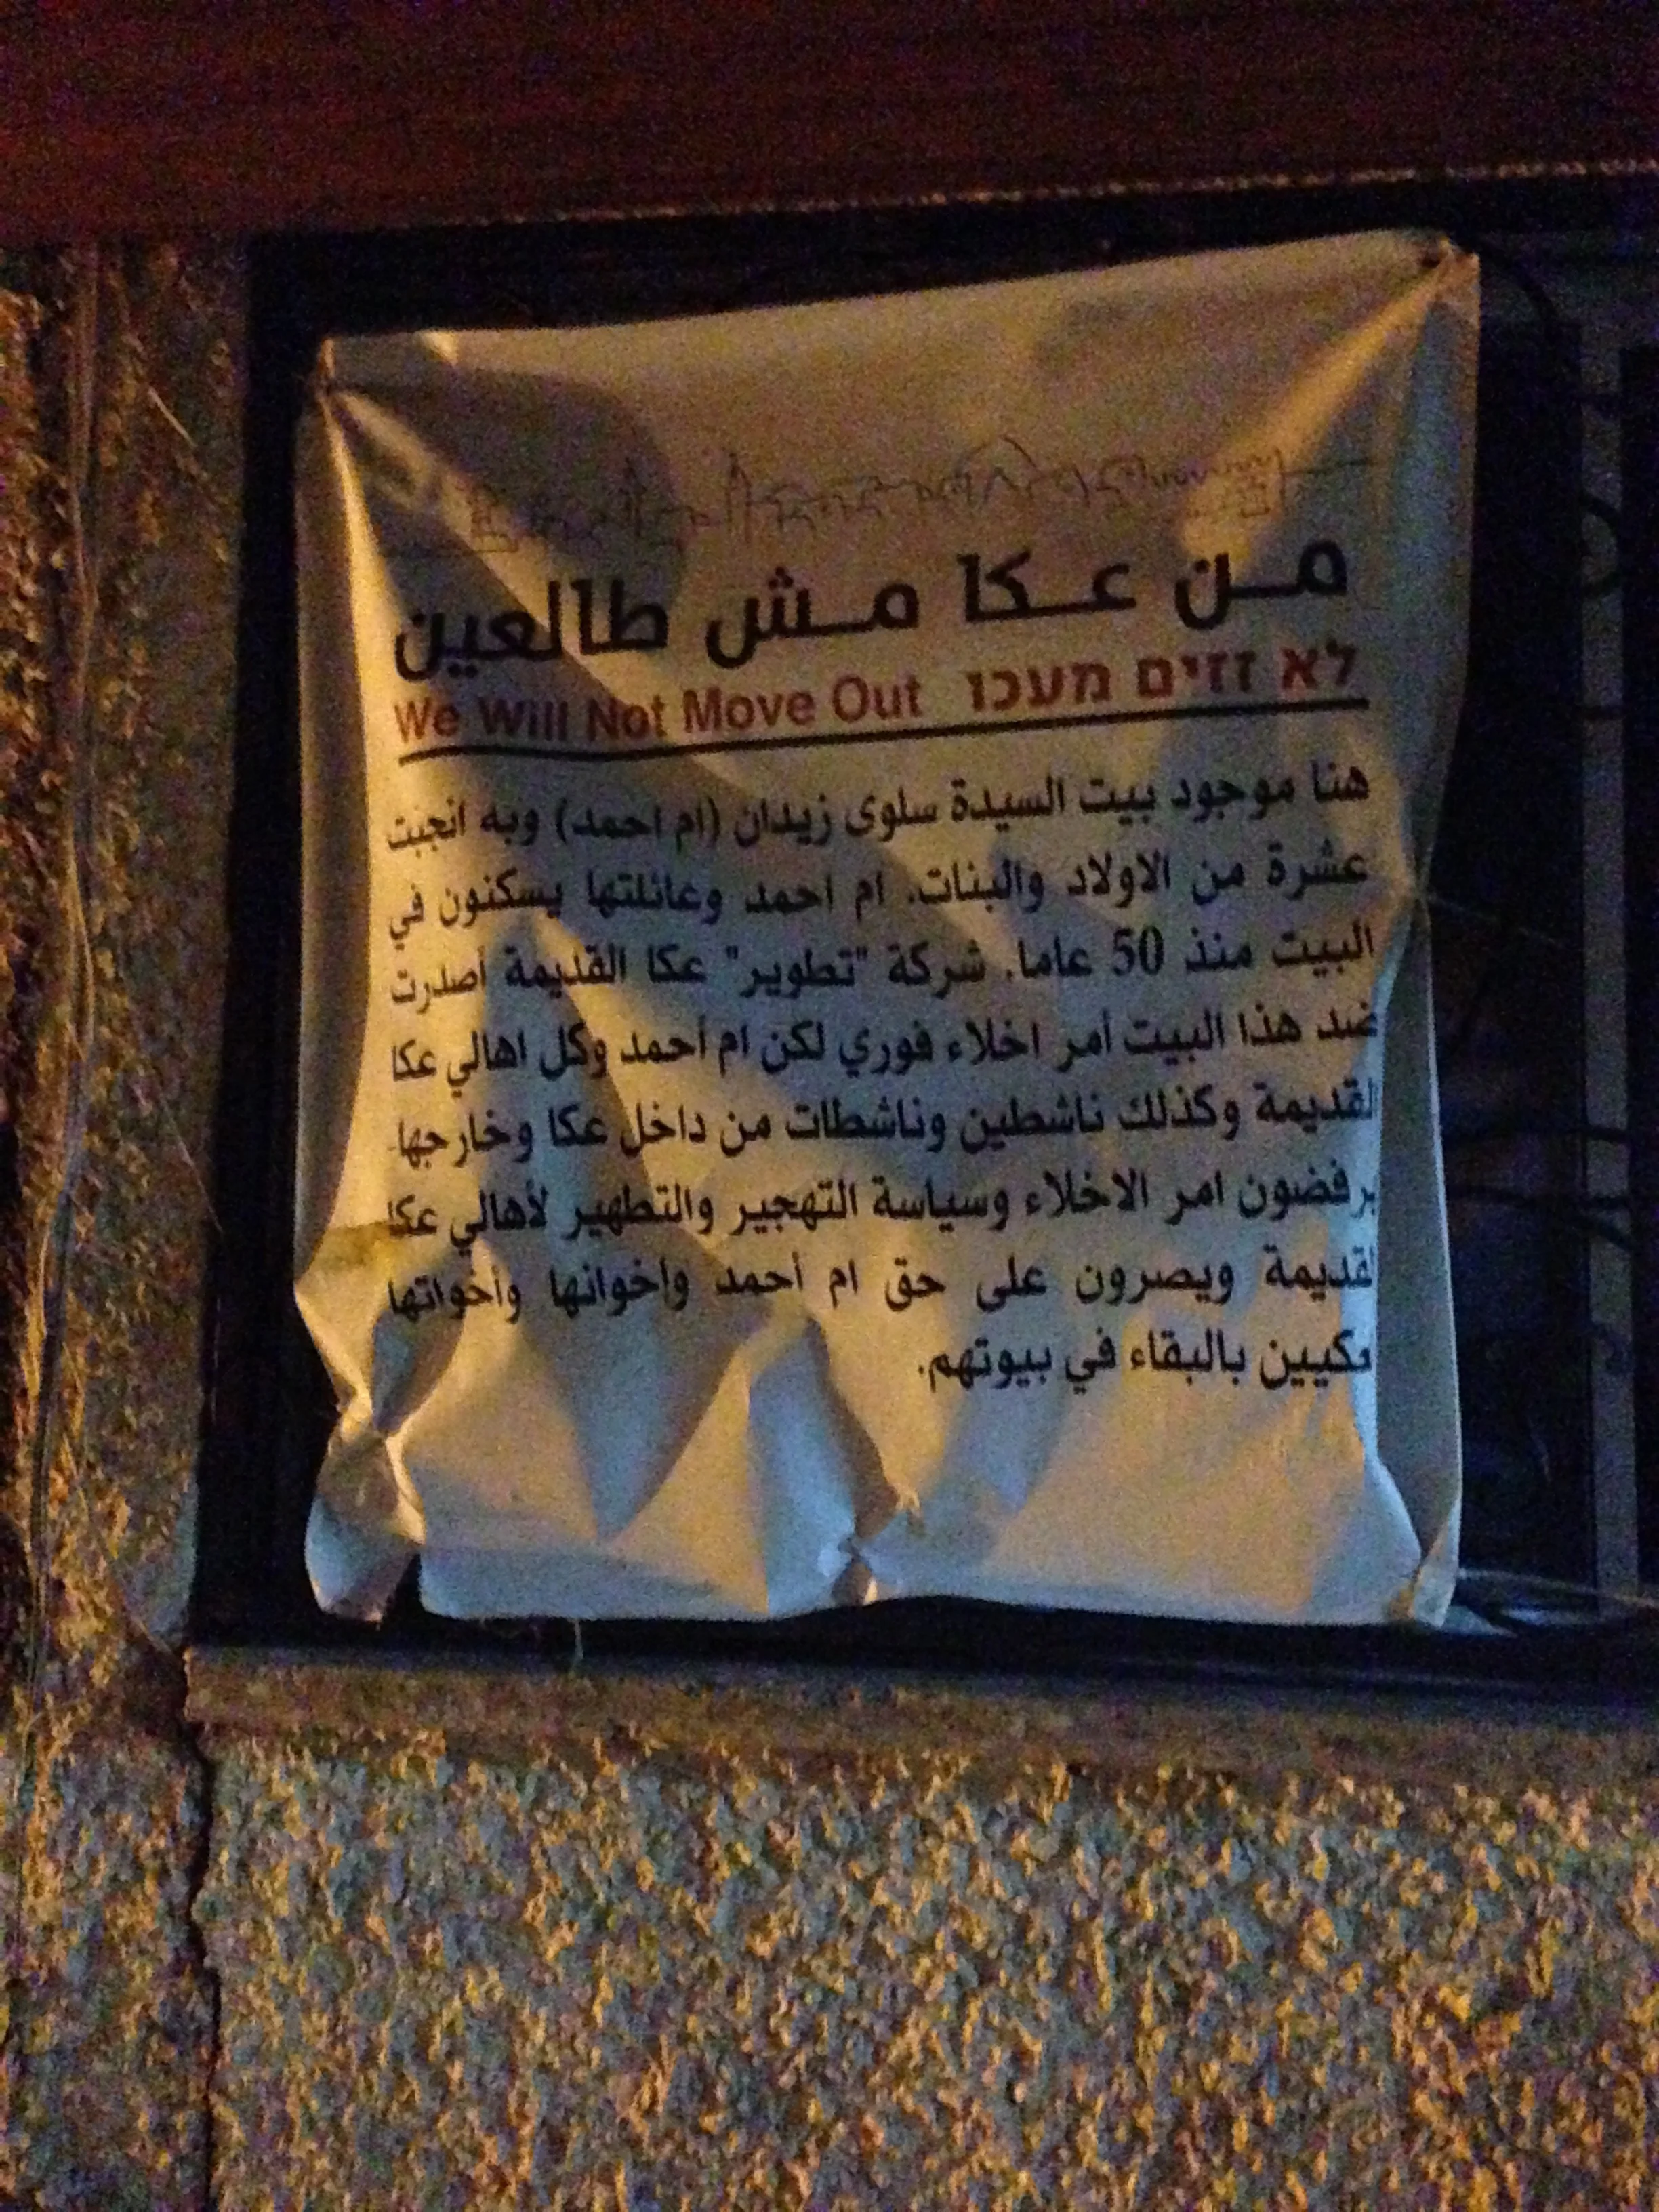 من عكا مش طالعين
לא זזים מעכו We Will Not Move Out
هنا موجود بيت السيدة سلوى زيدان (ام احمد) وبه انجبت
عشرة من الاولاد والبنات. ام احمد وعائلتها يسكنون في
البيت منذ 50 عاما. شركة "تطوير" عكا القديمة أصدرت
ضد هذا البيت أمر اخلاء فوري لكن ام أحمد وكل اهالي عكا
القديمة وكذلك ناشطين وناشطات من داخل عكا وخارجها
يرفضون امر الاخلاء وسياسة التهجير والتطهير لأهالي عكا
القديمة ويصرون على حق ام أحمد واخوانها وأخواتها
عكيين بالبقاء في بيوتهم.